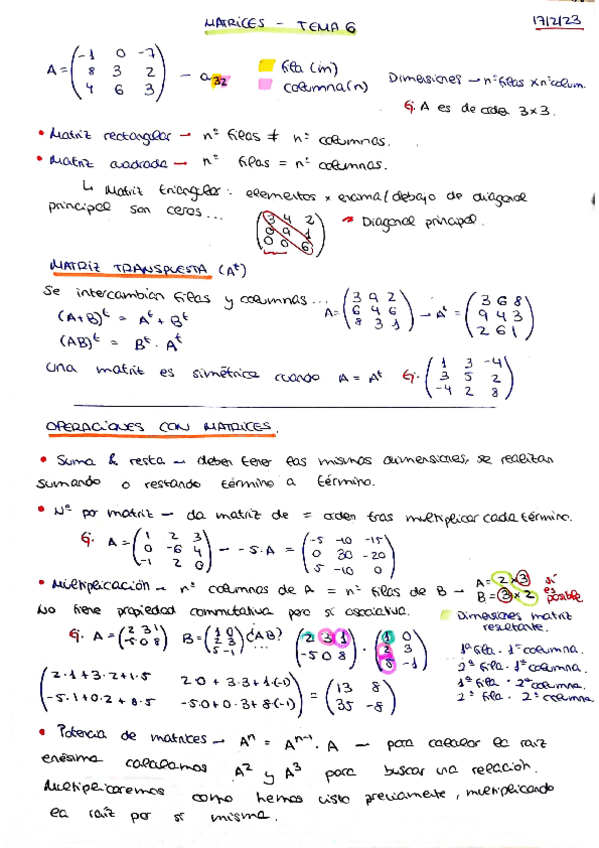 MATRICES - TEMA 6
17/2/23
A = (-1 0 -7
8 3 2
4 6 3) — a32
fila (m)
columna (n)
Dimensiones → nº filas x nº colum.
Ej. A es de orden 3x3.
• Matriz rectangular → nº filas ≠ nº columnas.
• Matriz cuadrada → nº filas = nº columnas.
↳ Matriz triangular: elementos x encima/debajo de diagonal
principal son ceros...
(3 4 2
0 9 1
0 0 6)
→ Diagonal principal.
MATRIZ TRANSPUESTA (Aᵗ)
Se intercambian filas y columnas...
A = (3 9 2
6 4 6
8 3 1) → Aᵗ = (3 6 8
9 4 3
2 6 1)
(A+B)ᵗ = Aᵗ + Bᵗ
(AB)ᵗ = Bᵗ · Aᵗ
Una matriz es simétrica cuando A = Aᵗ
Ej. (1 3 -4
3 5 2
-4 2 8)
OPERACIONES CON MATRICES.
• Suma & resta → deben tener las mismas dimensiones, se realizan
sumando o restando término a término.
• Nº por matriz → da matriz de = orden tras multiplicar cada término.
Ej. A = (1 2 3
0 -6 4
-1 2 0) → -5·A = (-5 -10 -15
0 30 -20
5 -10 0)
• Multiplicación → nº columnas de A = nº filas de B →
A = 2x3
B = 3x2
sí es posible
No tiene propiedad conmutativa pero sí asociativa.
Dimensiones matriz
resultante.
Ej. A = (2 3 1
-5 0 8) B = (1 0
2 3
5 -1) ¿AB?
(2 3 1
-5 0 8) · (1 0
2 3
5 -1)
1ª fila · 1ª columna.
2ª fila · 1ª columna.
1ª fila · 2ª columna.
2ª fila · 2ª columna.
(2·1+3·2+1·5 2·0 + 3·3+1·(-1)
-5·1+0·2 + 8·5 -5·0+0·3+8·(-1)) = (13 8
35 -8)
• Potencia de matrices → Aⁿ = Aⁿ⁻¹ · A — para calcular la raíz
enésima calculamos A² y A³ para buscar una relación.
Multiplicaremos como hemos visto previamente, multiplicando
la raíz por sí misma.